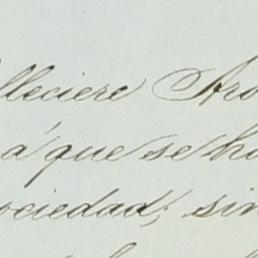 lleciere Aro
á que se ha
ociedad; sin